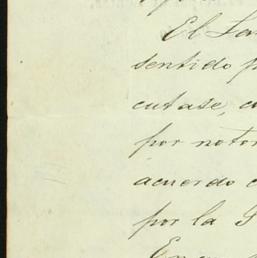 El La
sentido p
cutase, c
por notor
acuerdo c
por la S
En cu